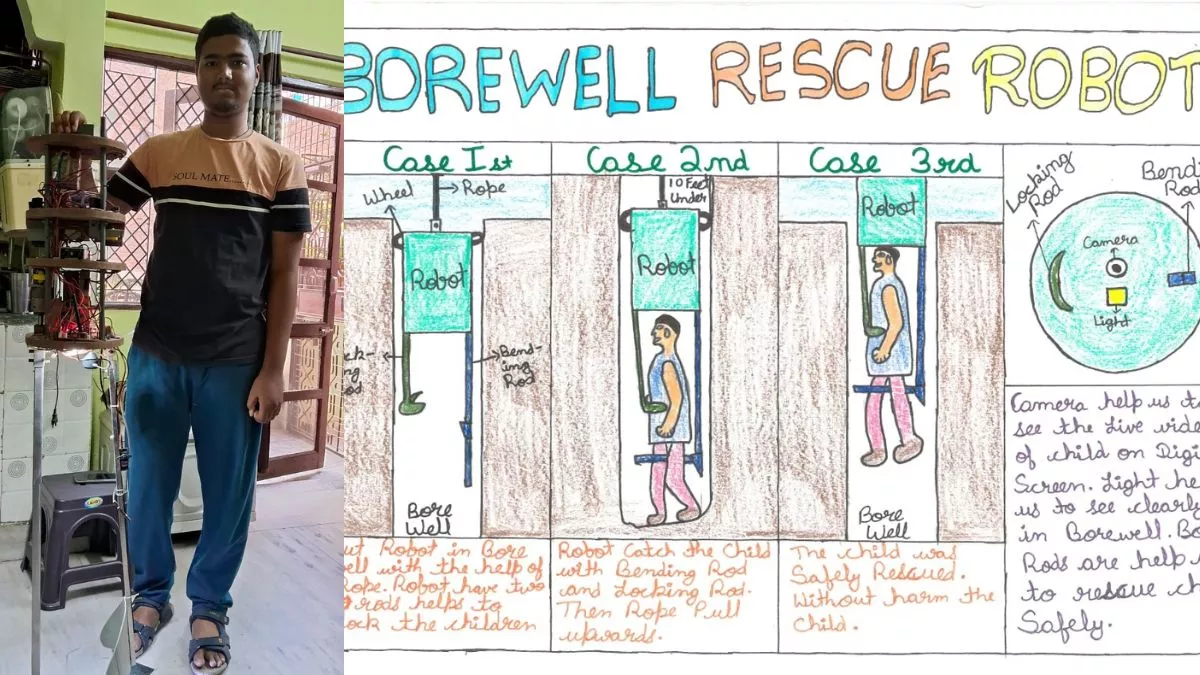 SOUL MATE......
BOREWELL RESCUE ROBOT
Case Ist
Wheel
Rope
Robot
Bend-
ing
Rod
Bore
Well
ut Robot in Bore
ell with the help of
ope. Robot have two
rods helps to
ock the children
Case 2nd
10 Feet
Under
Robot
Robot Catch the Child
with Bending Rod
and Locking Rod.
Then Rope Pull
upwards.
Case 3rd
Robot
Bore
Well
The child was
Safely Rescued.
Without harm the
Child.
Locking
Rod
Bend
Rod
Camera
Light
Camera help us to
see the Live vide
of child on Digi
Screen. Light he
us to see clearly
in Borewell. Be
Rods are help
to rescue ch
Safely.